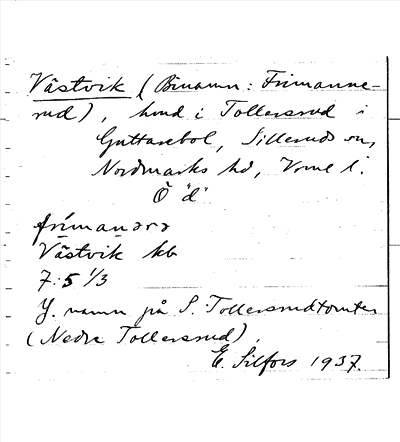 Västvik (Binamn: Frimanne-
rud), hmd i Tollersrud i
Guttarebol, Silleruds sn,
Nordmarks hd, Vrml l.
Ö "d"
frimanərə
Västvik kb
7:5 1/3
Y. namn på S. Tollersrudtomter
(Nedre Tollersrud).
E. Silfors 1937.